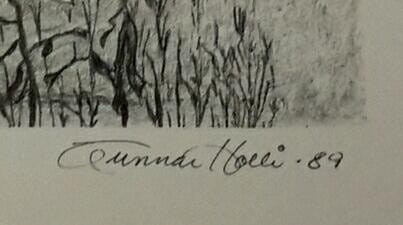 Gunnar Holli · 89